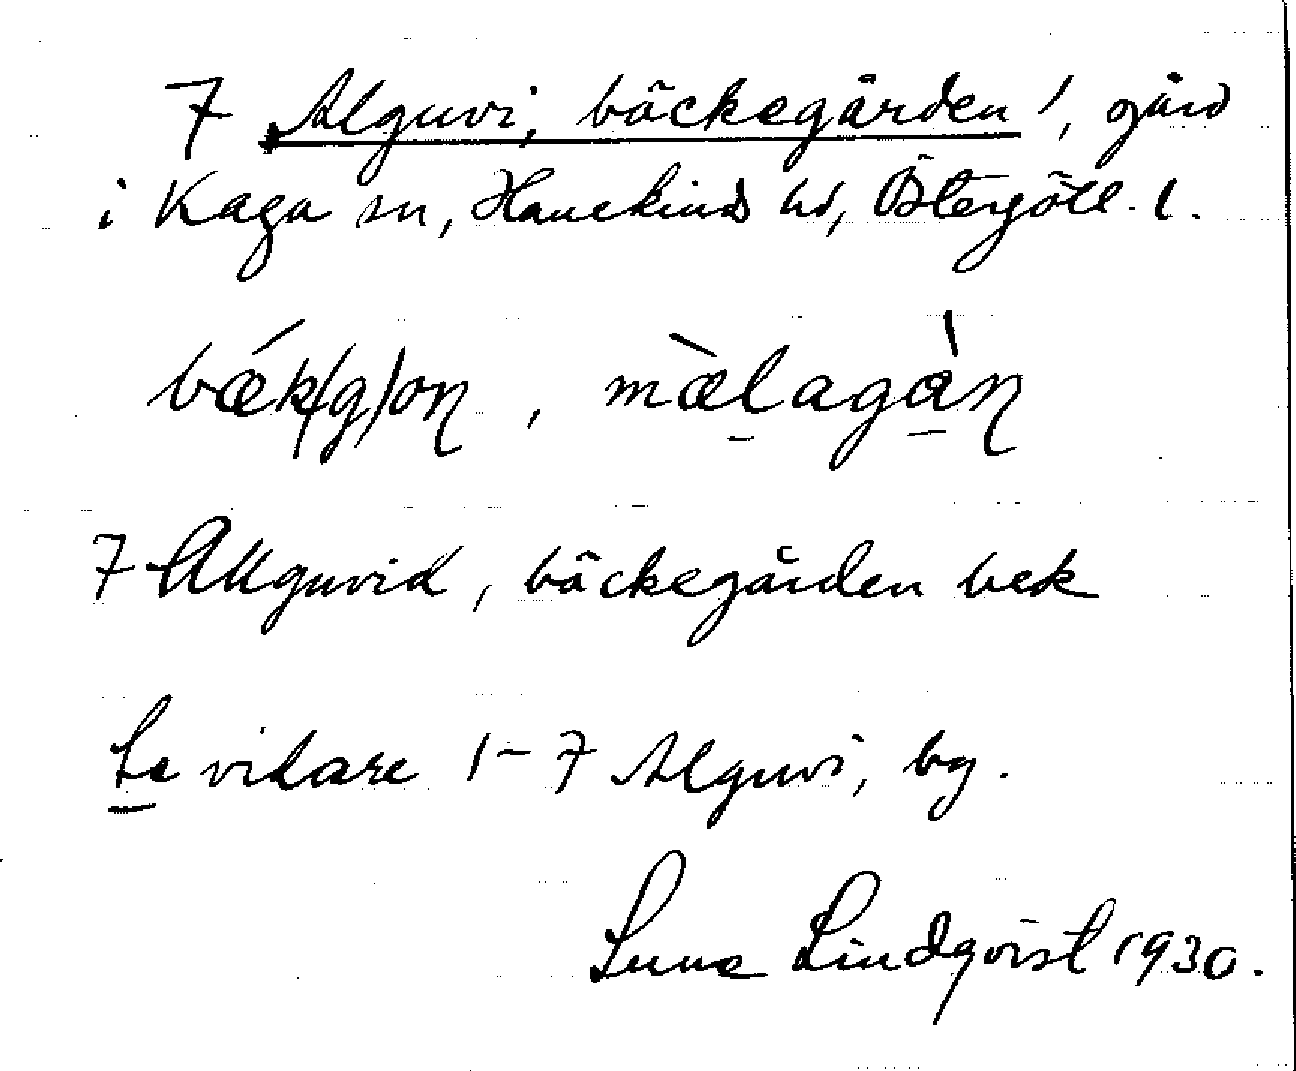 7 Alguvi, bäckegården !, gård
i Kaga sn, Hanekinds hd, Östergötl. l.
bǽk/g/on , mæ̀lagàn
7 Allguvid, bäckegården bek
Se vidare 1–7 Alguvi, by.
Sune Lindqvist 1930.